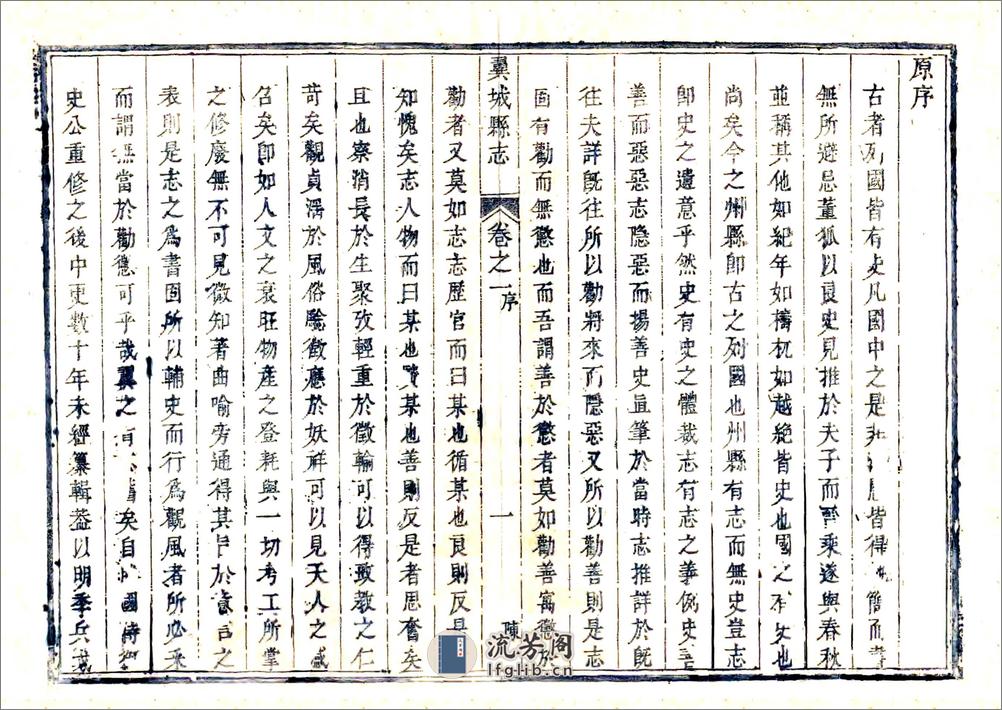 原序
古者列國皆有史凡國中之是非 皆得 簡而書
無所避忌董狐以良史見推於夫子而晉乘遂與春秋
並稱其他如紀年如檮杌如越絕皆史也國之有史也
尚矣今之州縣卽古之列國也州縣有志而無史豈志
卽史之遺意乎然史有史之體裁志有志之義例史善
善而惡惡志隱惡而揚善史直筆於當時志推詳於旣
往夫詳旣往所以勸將來而隱惡又所以勸善則是志
固有勸而無懲也而吾謂善於懲者莫如勸善寓懲於
翼城縣志 卷之一 序 一 陳
勸者又莫如志志歷官而曰某也循某也良則反是
知愧矣志人物而曰某也賢某也善則反是者思奮矣
且也察消長於生聚攷輕重於徵輸可以得政教之仁
苛矣觀貞淫於風俗驗徵應於妖祥可以見天人之感
召矣卽如人文之衰旺物產之登耗與一切考工所掌
之修廢無不可見微知著曲喻旁通得其旨於意言之
表則是志之爲書固所以輔史而行爲觀風者所必采
而謂無當於勸懲可乎哉翼之有 矣自 國
史公重修之後中更數十年未經纂輯葢以明季兵
流芳阁
lfglib.cn